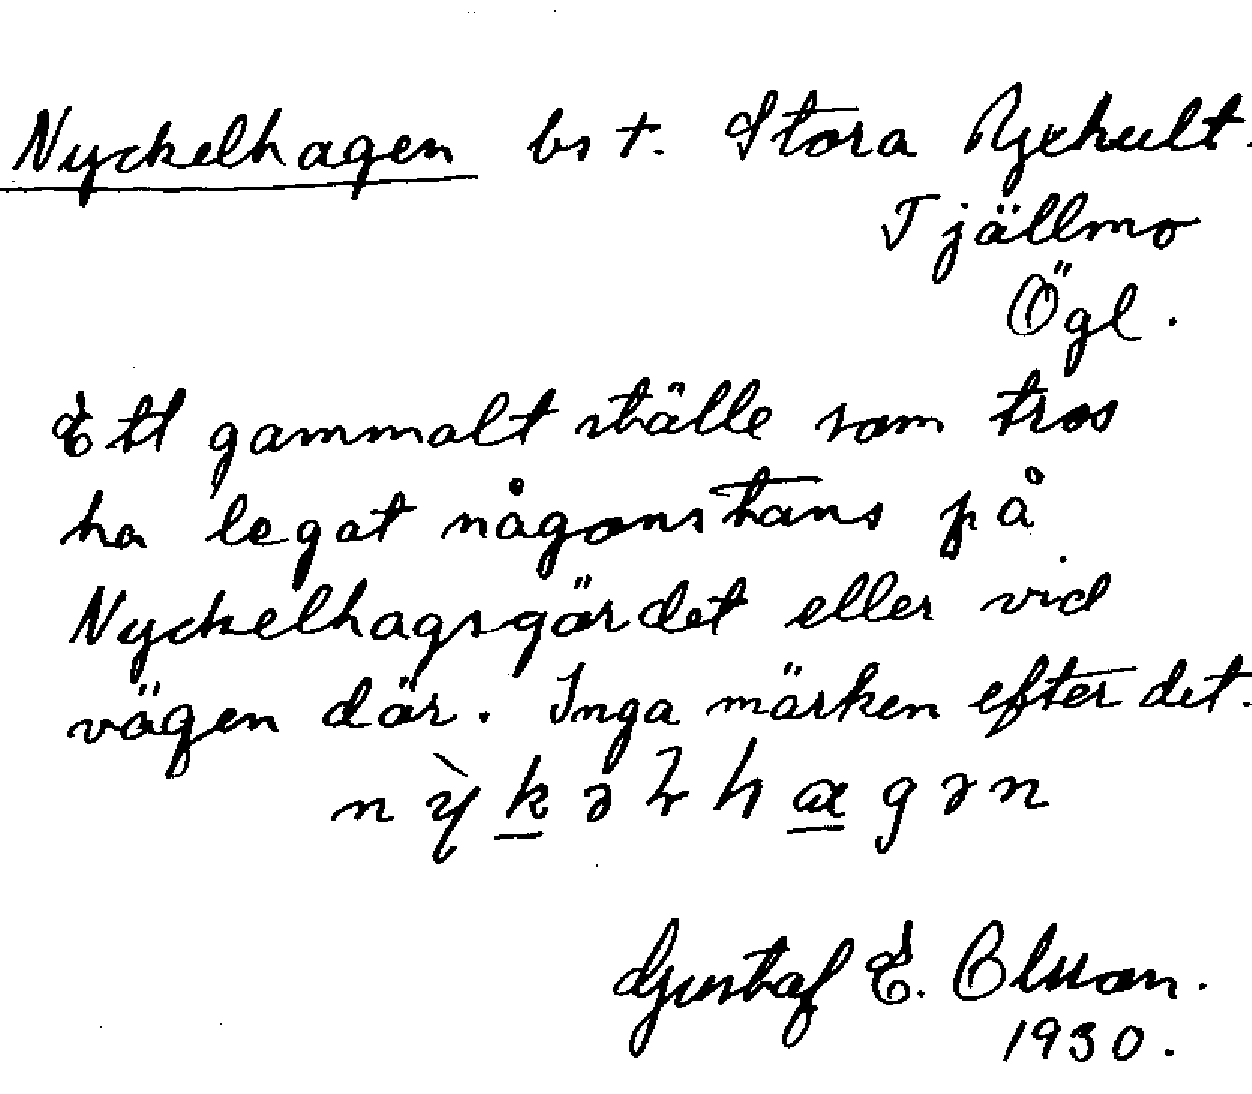 Nyckelhagen bs t. Stora Rjäkult.
Tjällmo
Ögl.
Ett gammalt ställe som tros
ha legat någonstans på
Nyckelhagsgärdet eller vid
vägen där. Inga märken efter det.
nỳkəɫhagən
Gustaf E. Olsson.
1930.